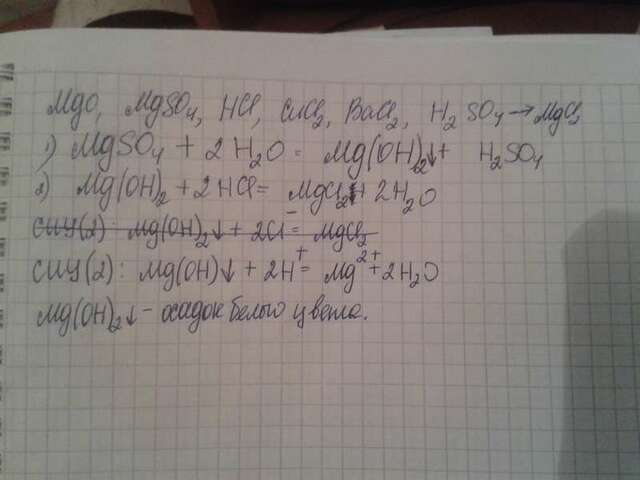 MgO, MgSO₄, HCl, CuCl₂, BaCl₂, H₂SO₄ → MgCl₂
1) MgSO₄ + 2H₂O = Mg(OH)₂↓ + H₂SO₄
2) Mg(OH)₂ + 2HCl = MgCl₂ + 2H₂O
СИУ(2): Mg(OH)₂↓ + 2Cl⁻ = MgCl₂
СИУ(2): Mg(OH)↓ + 2H⁺ = Mg²⁺ + 2H₂O
Mg(OH)₂↓ - осадок белого цвета.